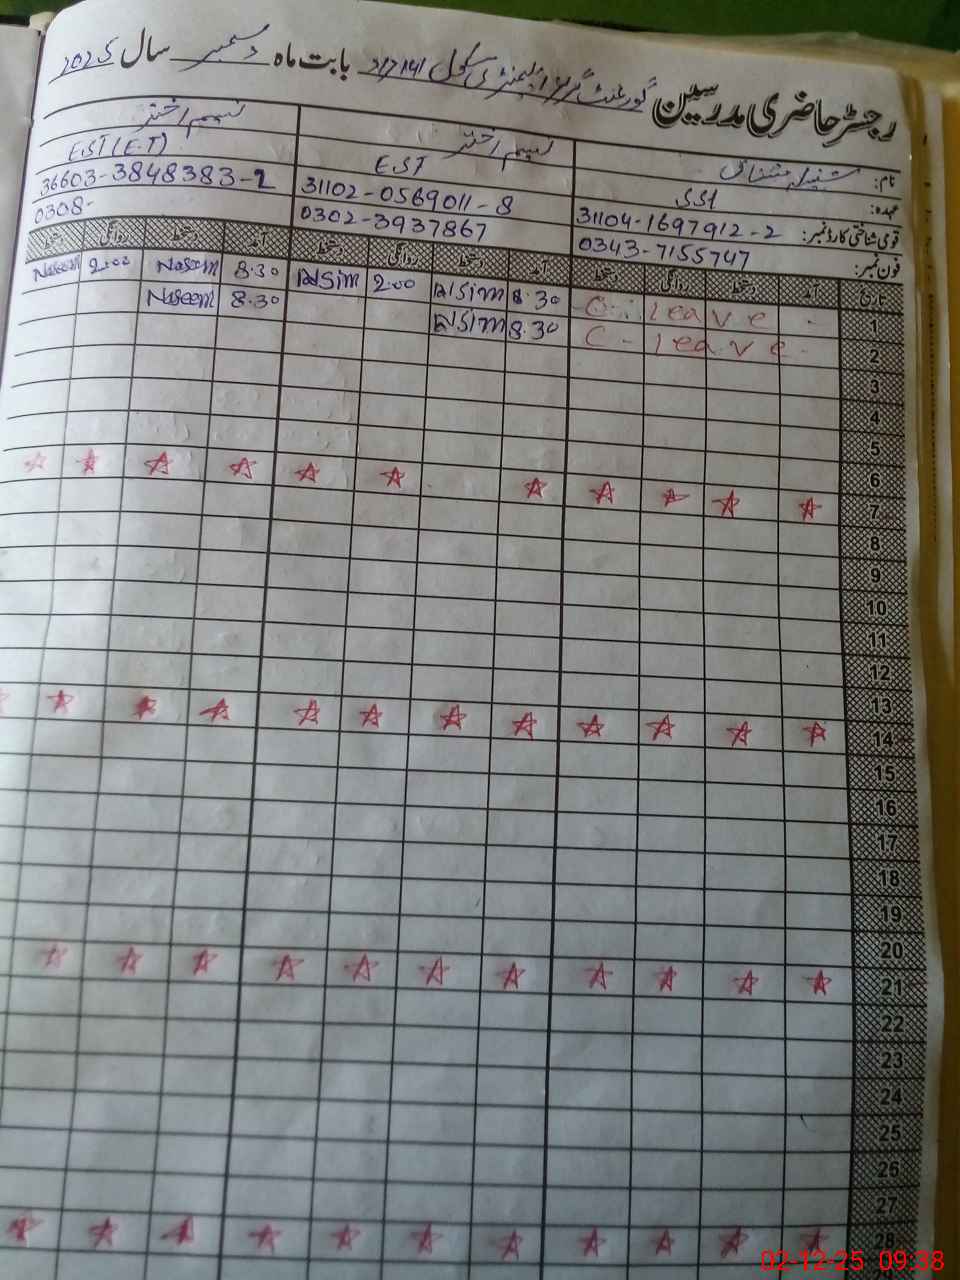 رجسٹر حاضری مدرسین گورنمنٹ گرلز ایلیمنٹری سکول 217141 بابت ماہ دسمبر سال 2025
نام: شہلا مشتاق نسیم اختر نسیم اختر
عہدہ: SST EST EST (E.T)
قومی شناختی کارڈ نمبر: 31104-1697912-2 31102-0569011-8 36603-3848383-2
فون نمبر: 0343-7155747 0302-3937867 0308-
تاریخ آمد دستخط روانگی دستخط آمد دستخط روانگی دستخط آمد دستخط روانگی دستخط
1 C. leave 8.30 Nsim 2.00 Nsim 8.30 Naseem 2.00 Naseem
2 C- leave 8.30 Nsim 8.30 Naseem
3
4
5
6
7
8
9
10
11
12
13
14
15
16
17
18
19
20
21
22
23
24
25
26
27
28
02-12-25 09:38